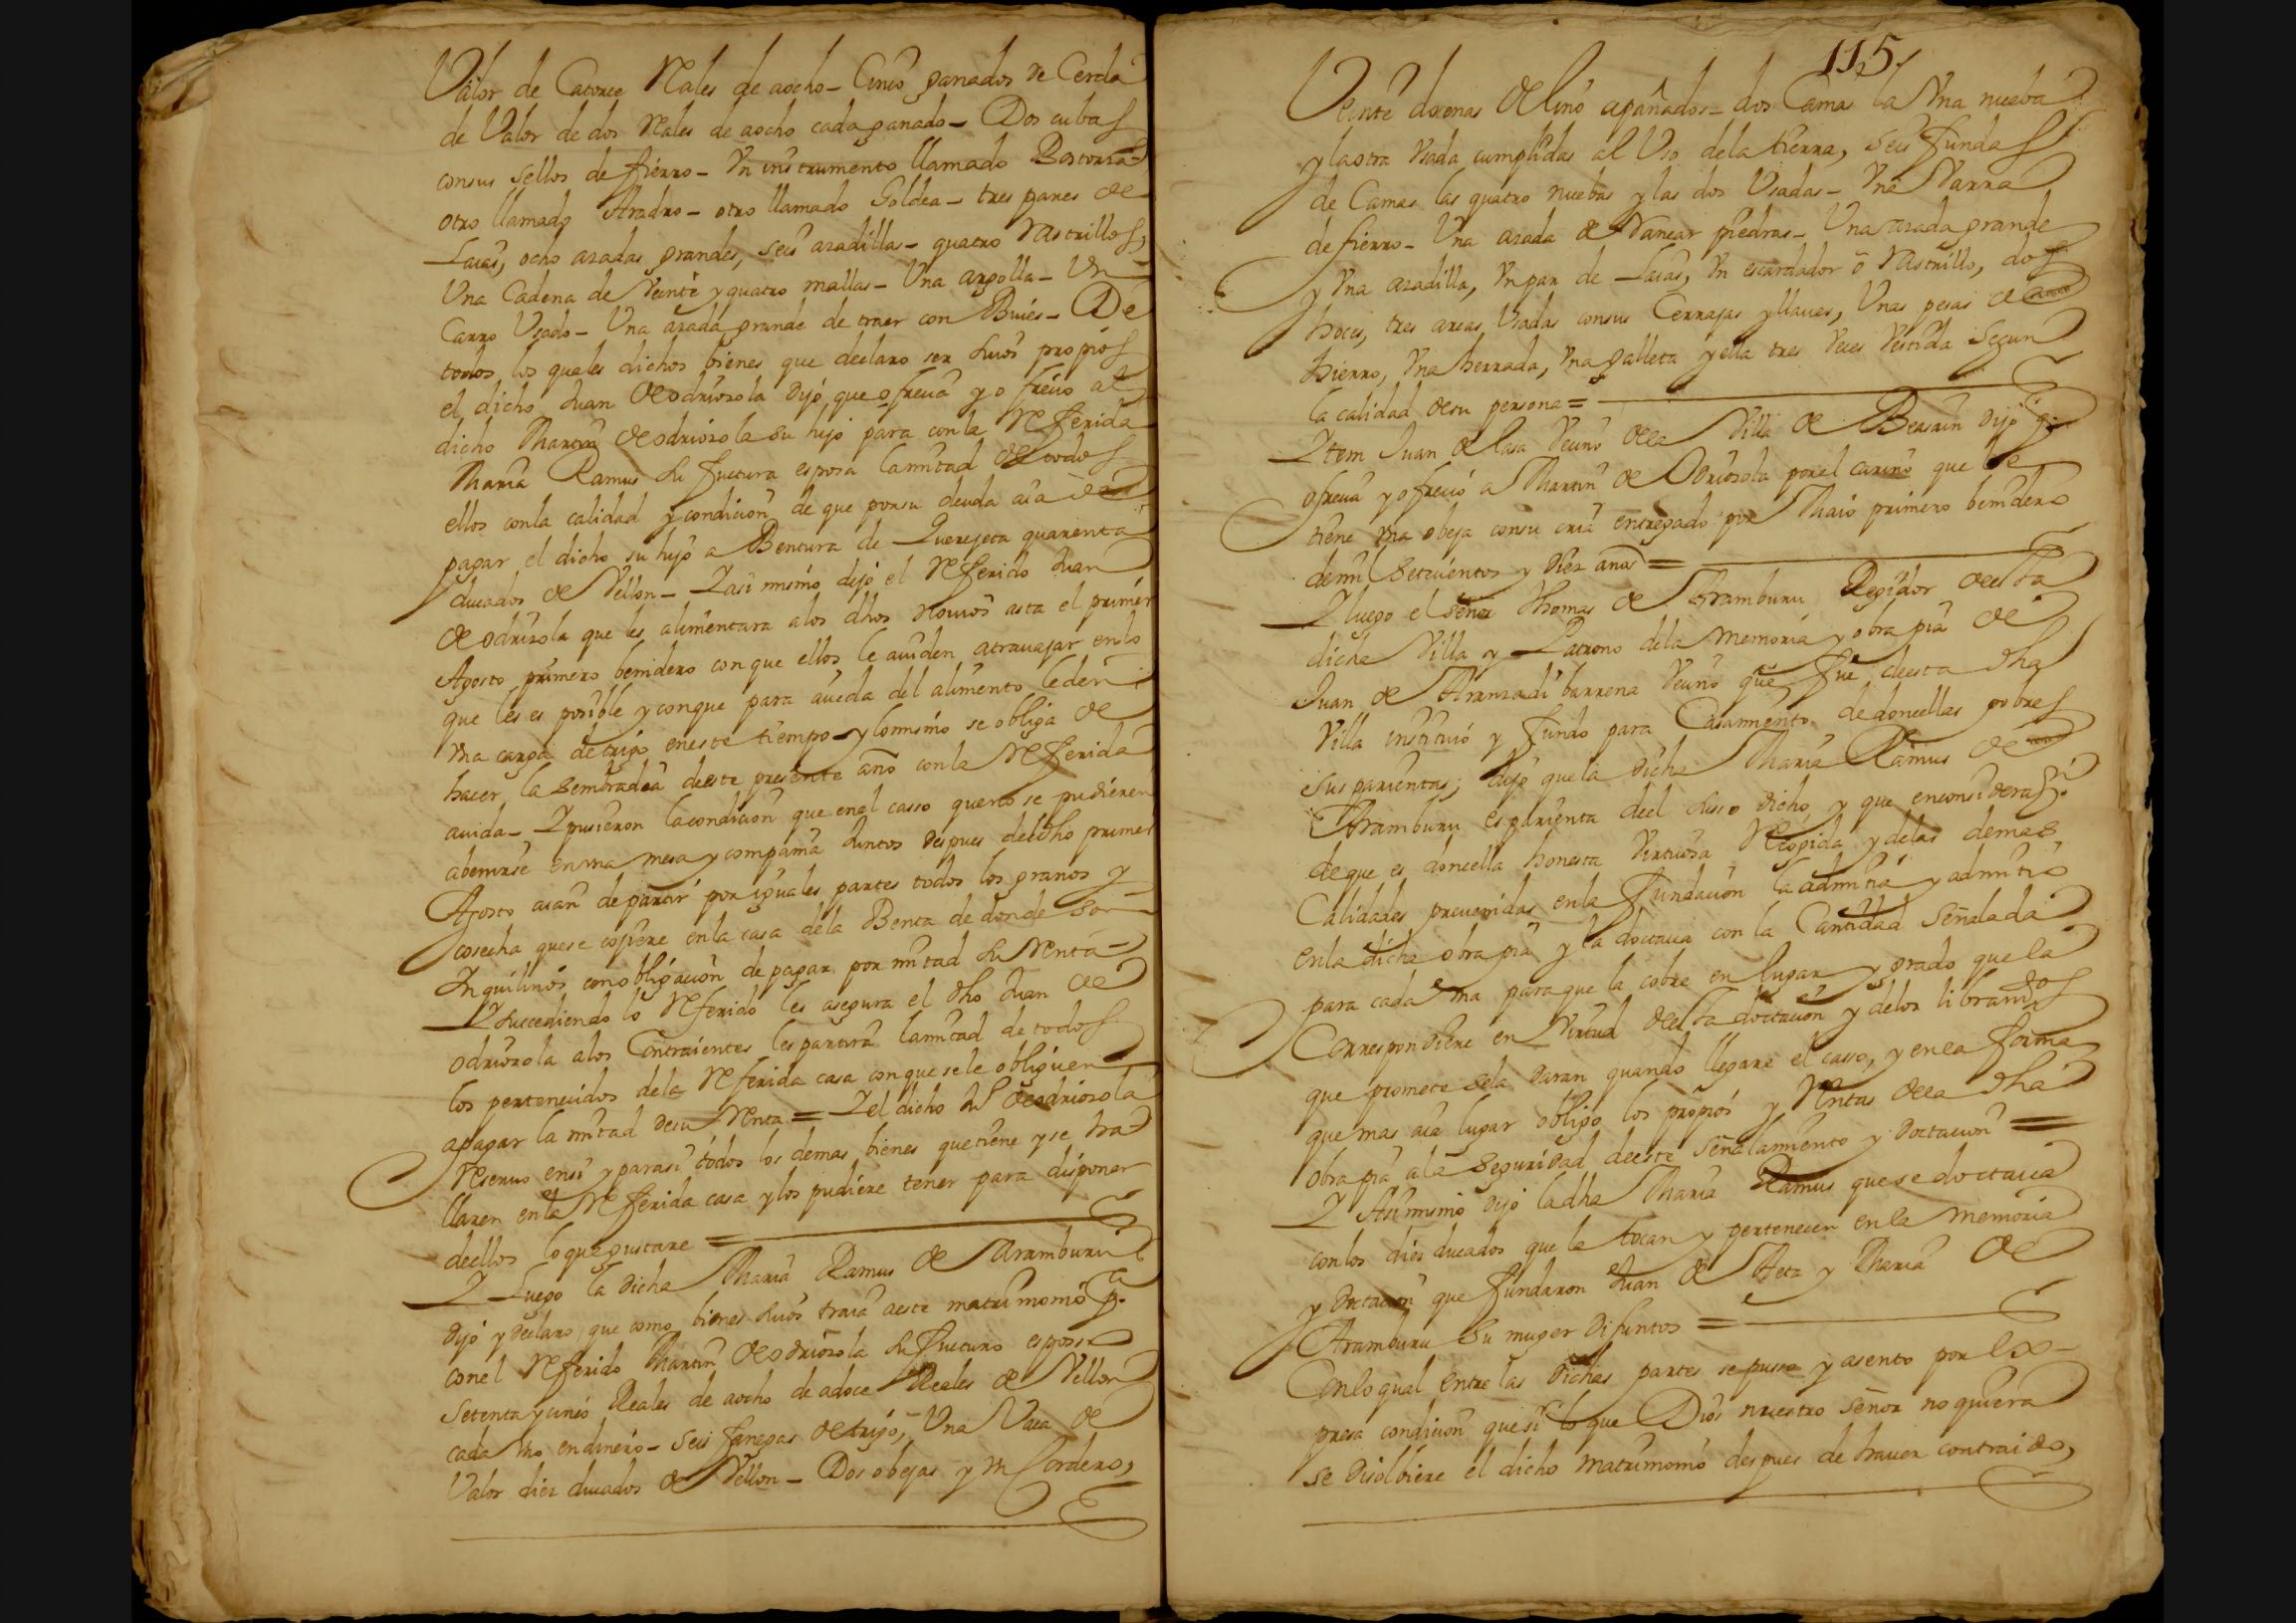 Valor de Catorce Rales de aocho - Cinco ganados de Cerda
de Valor de dos Rales de aocho cada ganado - Dos cubas
consus sellos de fierro - Vn instrumento llamado Bostorza
otro llamado Aradro - otro llamado Goldea - tres pares de
Laias, ocho azadas grandes, seis azadillas - quatro rastrillos,
Vna Cadena de Veinte y quatro mallas - Vna argolla - Vn
Carro Vsado - Vna azada grande de traer con Buies - De
todos los quales dichos bienes que declaro ser suios propios
el dicho Juan de odriozola dijo que ofrecia y ofrecio al
dicho Martin de odriozola su hijo para con la Referida
Maria Ramus su fuctura esposa la mitad de todos
ellos con la calidad y condicion de que por su deuda aia de
pagar el dicho su hijo a Bentura de Querejeta quarenta
ducados de Vellon - Y asi mismo dijo el Referido Juan
de odriozola que les alimentara a los dhos Novios asta el primer
Agosto primero benidero con que ellos le aiuden atrauajar en lo
que les es posible y conque para aiuda del alimento le den
vna carga de trigo en este tiempo - y lo mismo se obliga de
hacer la sembradia de este presente año con la Referida
aiuda - Y pusieron la condicion que en el casso que no se pudieren
abenirse en vna mesa y compañia Juntos despues del dho primer
Agosto aian de partir por iguales partes todos los granos y
cosecha que se cojiere en la casa de la Benta de donde son
Inquilinos con obligacion de pagar por mitad su Renta -
Y succediendo lo Referido les asegura el dho Juan de
odriozola a los Contraientes les partira la mitad de todos
los pertenecidos de la Referida casa con que se le obliguen
a pagar la mitad de su Renta = Y el dicho Ju de odriozola
Reseruo en si y para si todos los demas bienes que tiene y se ha
llaren en la Referida casa y los pudiere tener para disponer
de ellos lo que gustare =
Y Luego la dicha Maria Ramus de Aramburu
dijo y declaro que como bienes suios traia a este matrimonio pa
con el Referido Martin de odriozola su fucturo esposo
setenta y cinco Reales de aocho de adoce Reales de Vellon
cada vno en dinero - seis fanegas de trigo, Vna Vaca de
Valor diez ducados de Vellon - Dos obejas y vn Cordero,
115
Veinte dozenas de lino apañados - dos Camas la Vna nueba
y la otra Vsada cumplidas al Vso de la tierra, seis fundas
de Camas las quatro nuebas y las dos Vsadas - Vna Varra
de fierro - Vna azada de Vancar piedras - Vna azada grande
y Vna azadilla, Vn par de Laias, Vn escardador o Rastrillo, dos
hoces, tres arcas Vsadas consus Cerrajas y llaues, Vnas pesas de
hierro, Vna herrada, Vna galleta y ella tres Veces Vestida segun
la calidad de su persona =
Ytem Juan de lasa Vecino de la Villa de Beasain dijo q
ofrecia y ofrecio a Martin de Odriozola por el cariño que le
tiene vna obeja consu cria entregado por Maio primero benidero
de mil Setecientos y Diez años =
Y luego el señor Thomas de Aramburu Regidor de esta
dicha Villa y Patrono de la memoria y obra pia de
Juan de Aranzadi barrena Vecino que fue de esta dha
Villa instituio y fundo para Casamiento de doncellas pobres
sus parientas; dijo que la dicha Maria Ramus de
Aramburu es parienta del susso dicho, y que en considerazn
de que es doncella honesta Virtuosa Recogida y de las demas
Calidades preuenidas en la fundacion la admitia y admitio
en la dicha obra pia y la doctaua con la Cantidad señalada
para cada vna para que la cobre en lugar y grado que la
Correspondiere en Virtud de esta doctacion y de los librandos
que promete se la daran quando llegare el casso, y en la forma
que mas aia lugar obligo los propios y Rentas de la dha
obra pia a la seguridad de este señalamiento y doctacion =
Y Asimismo dijo la dha Maria Ramus que se doctaua
con los diez ducados que le tocan y pertenecen en la memoria
y doctacion que fundaron Juan de Aeta y Maria de
Aramburu su muger difuntos =
Con lo qual entre las dichas partes se pusso y asento por ex-
presa condicion que si lo que Dios nuestro señor no quiera
se disolbiere el dicho matrimonio despues de hauer contraido,